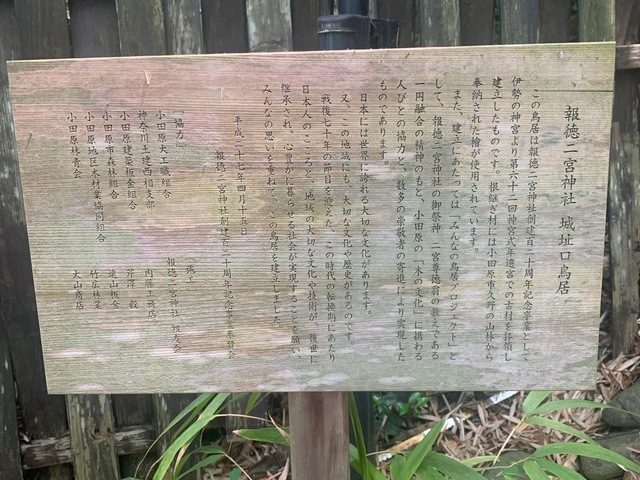 報徳二宮神社 城址口鳥居
この鳥居は報徳二宮神社創建百二十周年記念事業として
伊勢の神宮より第六十二回神宮式年遷宮での古材を拝領し
建立したものです。根継ぎ材には小田原市久野の山林から
奉納された檜が使用されています。
また、建立にあたっては「みんなの鳥居プロジェクト」と
して、報徳二宮神社の御祭神 二宮尊徳翁の教えである
一円融合の精神のもと、小田原の「木の文化」に携わる
人びとの協力と、数多の崇敬者の寄進により実現した
ものであります。
日本には世界に誇れる大切な文化があります。
又、この地域にも、大切な文化や歴史があるのです。
戦後七十年の節目を迎えた、この時代の転換期にあたり
日本人のこころと、地域の大切な文化や技術が、後世に
継承され、心豊かに暮らせる社会が実現することを願い、
みんなの思いを重ねて、この鳥居を建立しました。
平成二十七年四月十五日
報徳二宮神社創建百二十周年記念事業奉賛会
「協力」
小田原大工職組合
神奈川土建西相支部
小田原建築板金組合
小田原市森林組合
小田原地区木材業協同組合
小田原林青会
「施工」
報徳二宮神社 旭友会
内藤工務店
芹澤 毅
遠山板金
竹広林業
大山商店